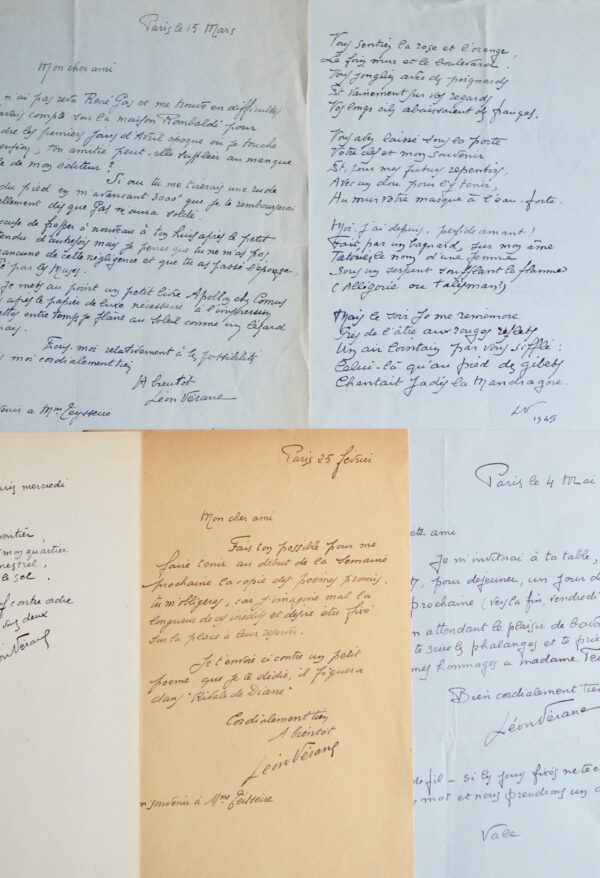 Paris le 15 Mars
Mon cher ami
n'ai pas revu René Gas et me trouve en difficultés
avais compté sur la maison Rombaldi pour
dre les premiers jours d'Avril époque où je touche
ton amitié peut-elle suppléer au manque
de mon editeur ?
Si oui tu me tirerais une rude
du pied en m'avançant 3000 que je te rembourserai
ellement dès que Gas m'aura soldé.
de frapper à nouveau à ton huis après le petit
d'autrefois mais je pense que tu ne m'as pas
rancune de cette négligence et que tu as passé l'éponge
par les Muses.
Je mets au point un petit livre Apollo chez Comus
après le papier de luxe nécessaire à l'impression
entre temps je flâne au soleil comme un lézard
mais.
moi relativement à la possibilité
moi cordialement tien
A bientôt
Léon Vérane
à Mme Teysseire
Vous sentiez la rose et l'orange,
Le foin mur et le boulevard.
Vous jongliez avec des poignards
Et vainement sur vos regards
Vos longs cils abaissaient des franges.
Vous avez laissé sous la porte
Votre clef et mon souvenir
Et, pour mes futurs repentirs,
Avec un clou pour l'y tenir,
Au mur votre masque à l'eau-forte.
Moi j'ai depuis, perfide amante !
Fait, par un bagnard, sur mon âme
Tatouer le nom d'une femme
Sous un serpent soufflant la flamme
(Allégorie ou Talisman !)
Mais le soir je me remémore
Près de l'âtre aux rouges reflets
Un air lointain par vous sifflé :
Celui-là qu'au pied des gibets
Chantait jadis la Mandragore.
LV
1945
Paris mercredi
mon quartier
le sel.
contre ordre
vous deux
Léon Vérane
Paris 25 février
Mon cher ami
Fais ton possible pour me
faire tenir au début de la semaine
prochaine la copie des poèmes promis.
tu m'obligeras, car j'imagine mal la
longueur de ces inédits et désire être fixé
sur la place à leur réserver.
Je t'envoie ci contre un petit
poème que je te dédie, il figurera
dans "Rivale de Diane"
Cordialement tien
A bientôt
Léon Vérane
souvenir à Mme Teisseire
Paris le 4 Mai
ami
Je m'inviterai à ta table,
pour déjeuner, un jour de
prochaine (vers la fin, vendredi
en attendant le plaisir de
te serre les phalanges et te prie
mes hommages a madame
Bien cordialement tien
Léon Vérane
de fil - si les jours fixés ne te
mot et nous prendrons un
Vale